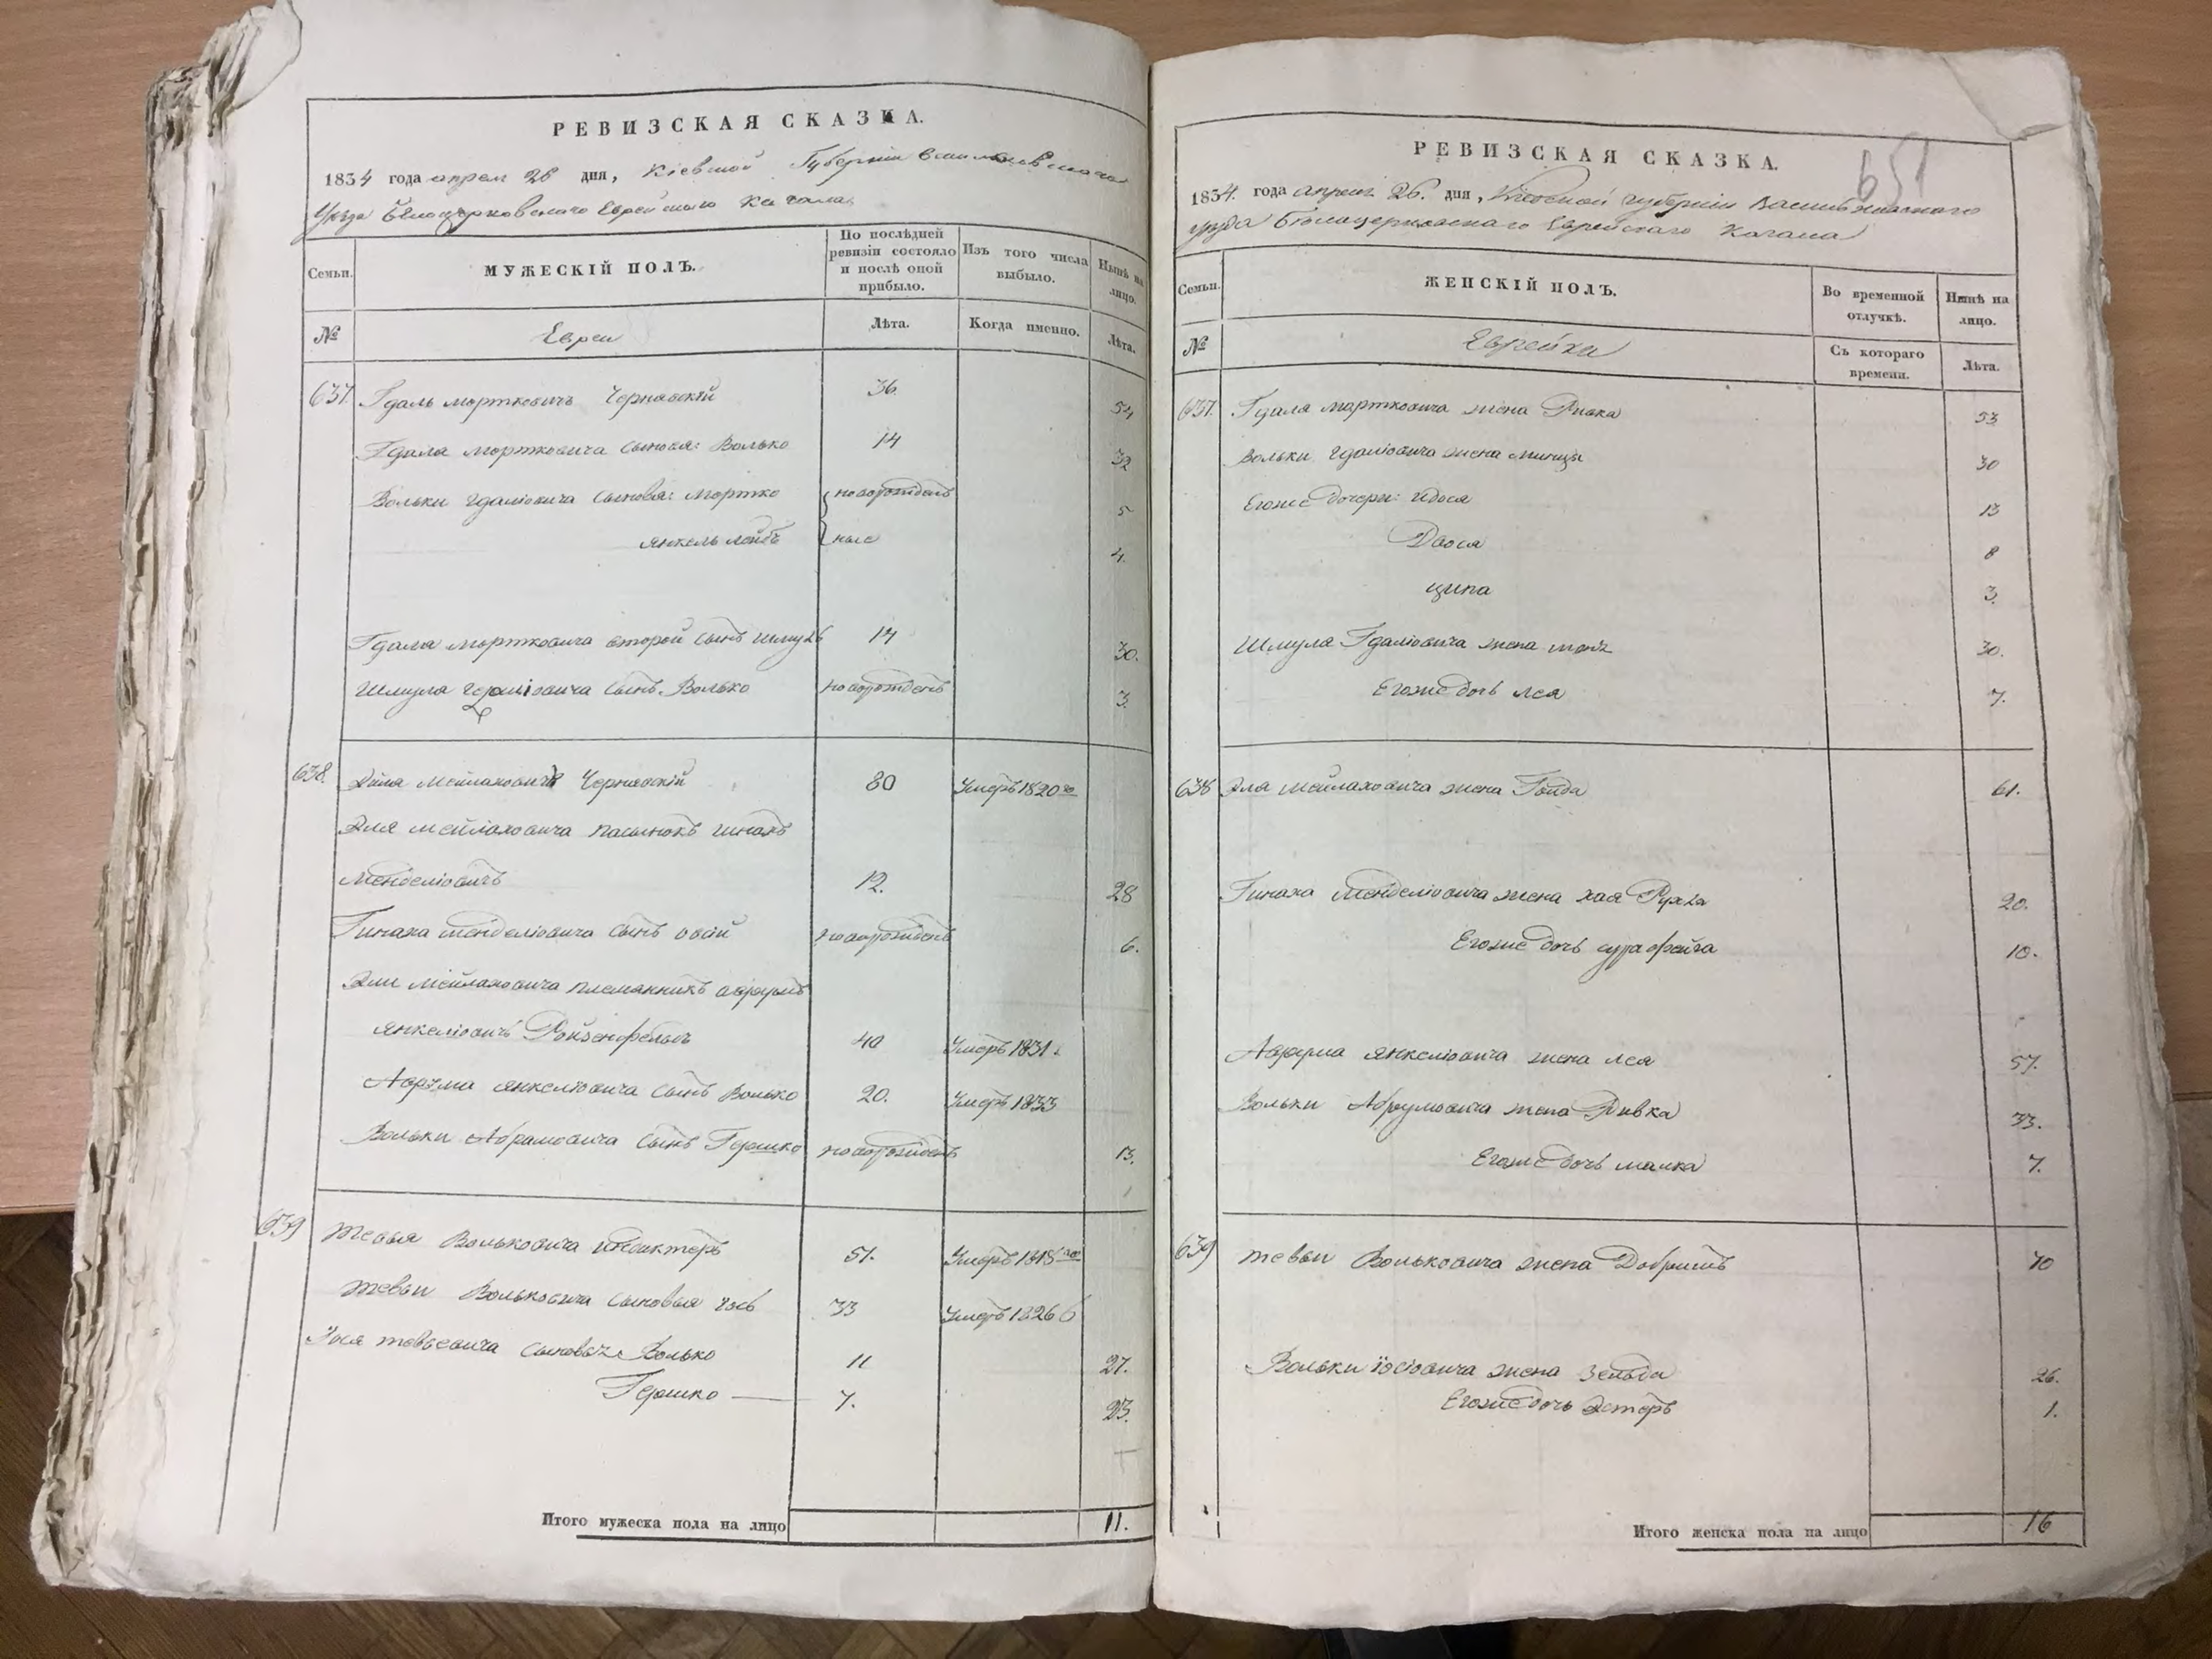 РЕВИЗСКАЯ СКАЗКА.
1834 года апрел 26 дня, Кіевской Губерніи Васильковскаго
Уезда Белоцерковскаго Еврейскаго Кагала
Семьи.
МУЖЕСКІЙ ПОЛЪ.
По послѣдней ревизіи состояло и послѣ оной прибыло.
Изъ того числа выбыло.
Нынѣ на лицо.
№
Евреи
Лѣта.
Когда именно.
Лѣта.
637. Гдаль Мортковичъ Чернявскій 36. 54
Гдаля Мортковича сыновья: Волько 14 32
Вольки Гдаліовича сыновья: Мортко новорожден 5
Янкель Лейбъ ные 4.
Гдаля Мортковича второй сынъ Шмуль 14 30.
Шмуля Гдаліовича сынъ Волько новорожденъ 3
638. Эля Мейлаховичъ Чернявскій 80 Умеръ 1820 го
Эля Мейлаховича пасынокъ Пинахъ
Менделіовичъ 12. 28
Пинаха Менделіовича сынъ Овсій новорожденъ 6.
Эли Мейлаховича племянникъ Аврумъ
Янкеліовичъ Ройзенфельдъ 40 Умеръ 1831
Аврума Янкеліовича сынъ Волько 20. Умеръ 1833
Вольки Абрамовича сынъ Гершко новорожденъ 13.
639 Тевья Вольковича 51. Умеръ 1818 го
Тевьи Вольковича сыновья Іось 33 Умеръ 1826
Іося Тевьевича сыновья Волько 11 27.
Гершко — 7. 23.
Итого мужеска пола на лицо 11.
651
РЕВИЗСКАЯ СКАЗКА.
1834. года апреля 26. дня, Кіевской губерніи Васильковскаго
уезда Белоцерковскаго Еврейскаго Кагала
Семьи.
ЖЕНСКІЙ ПОЛЪ.
Во временной отлучкѣ.
Нынѣ на лицо.
№
Еврейки
Съ котораго времени.
Лѣта.
637. Гдаля Мортковича жена Ривка 53
Вольки Гдаліовича жена Минця 30
Егоже дочери: Идося 13
Двося 8
Ципа 3.
Шмуля Гдаліовича жена 30.
Егоже дочь Лея 7.
638 Эля Мейлаховича жена Гольда 61.
Пинаха Менделіовича жена Хая Рухля 20.
Егоже дочь Сура Фейга 10.
Аврума Янкеліовича жена Лея 57.
Вольки Абрумовича жена Ривка 33.
Егоже дочь Малка 7.
639 Тевьи Вольковича жена Добришъ 70
Вольки Іосіовича жена Зельда 26.
Егоже дочь Эстеръ 1.
Итого женска пола на лицо 16